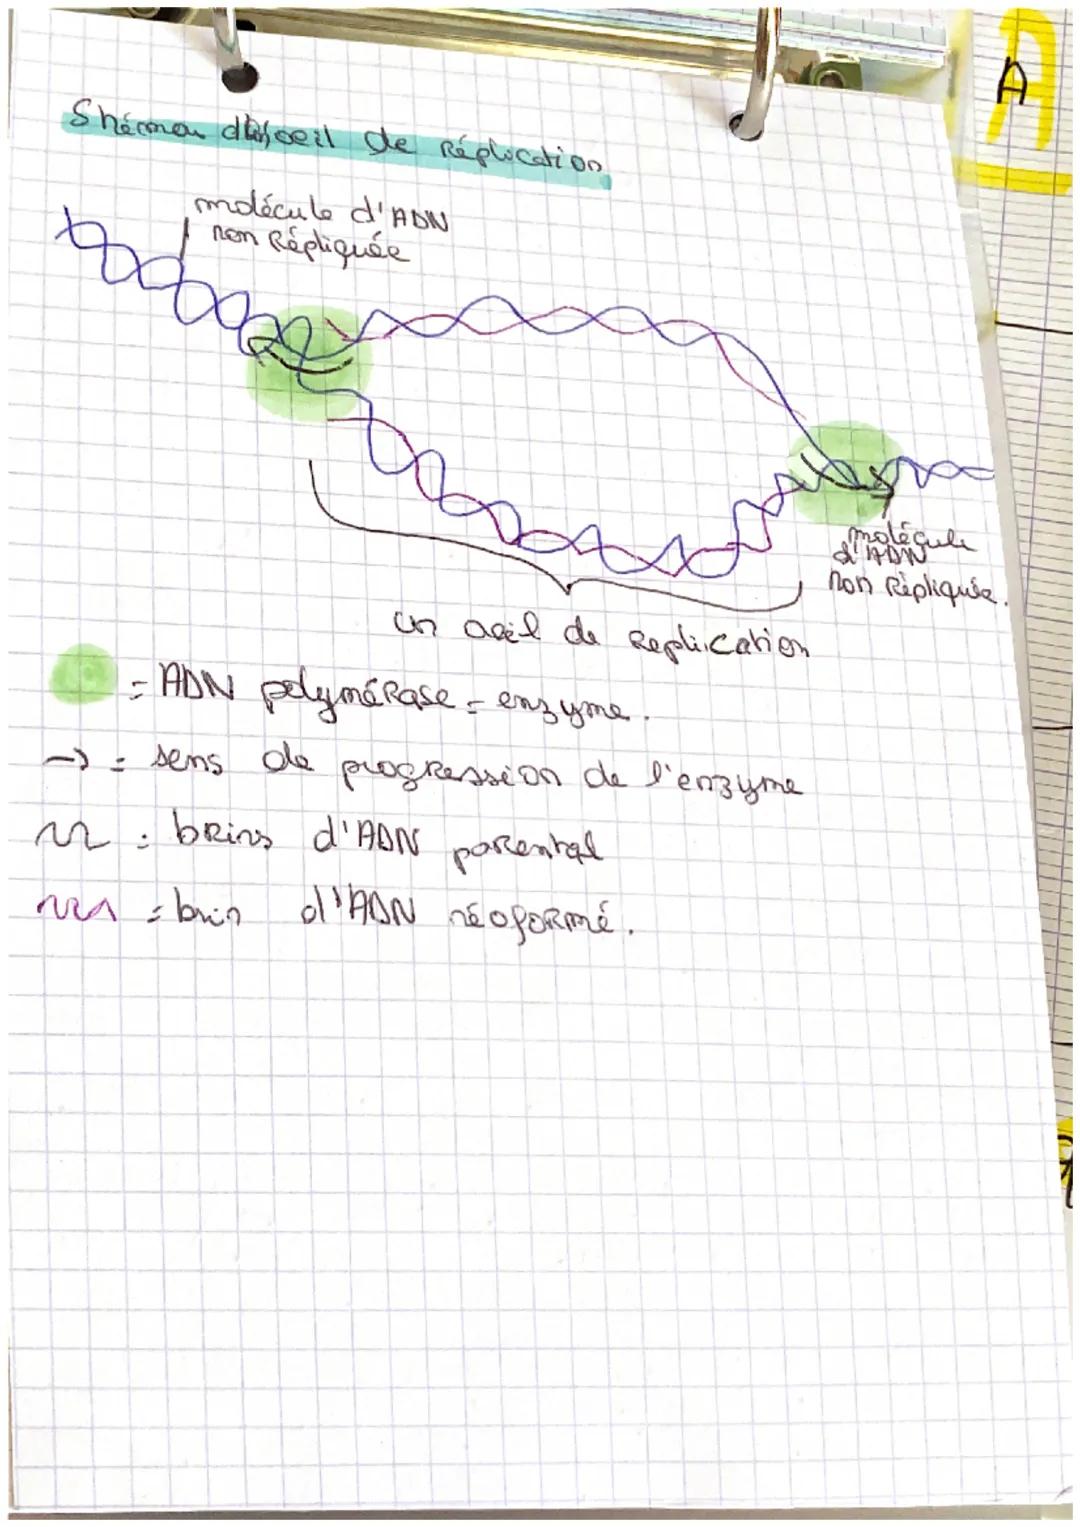 Shéma d'un oeil de Réplication
molécule d'ADN
non Répliquée
molécule
d'ADN
non Répliquée.
un oeil de Replication
= ADN polyméRase = enzyme.
→ = sens de progression de l'enzyme
= brins d'ADN parental
= brin d'ADN néoformé.
A